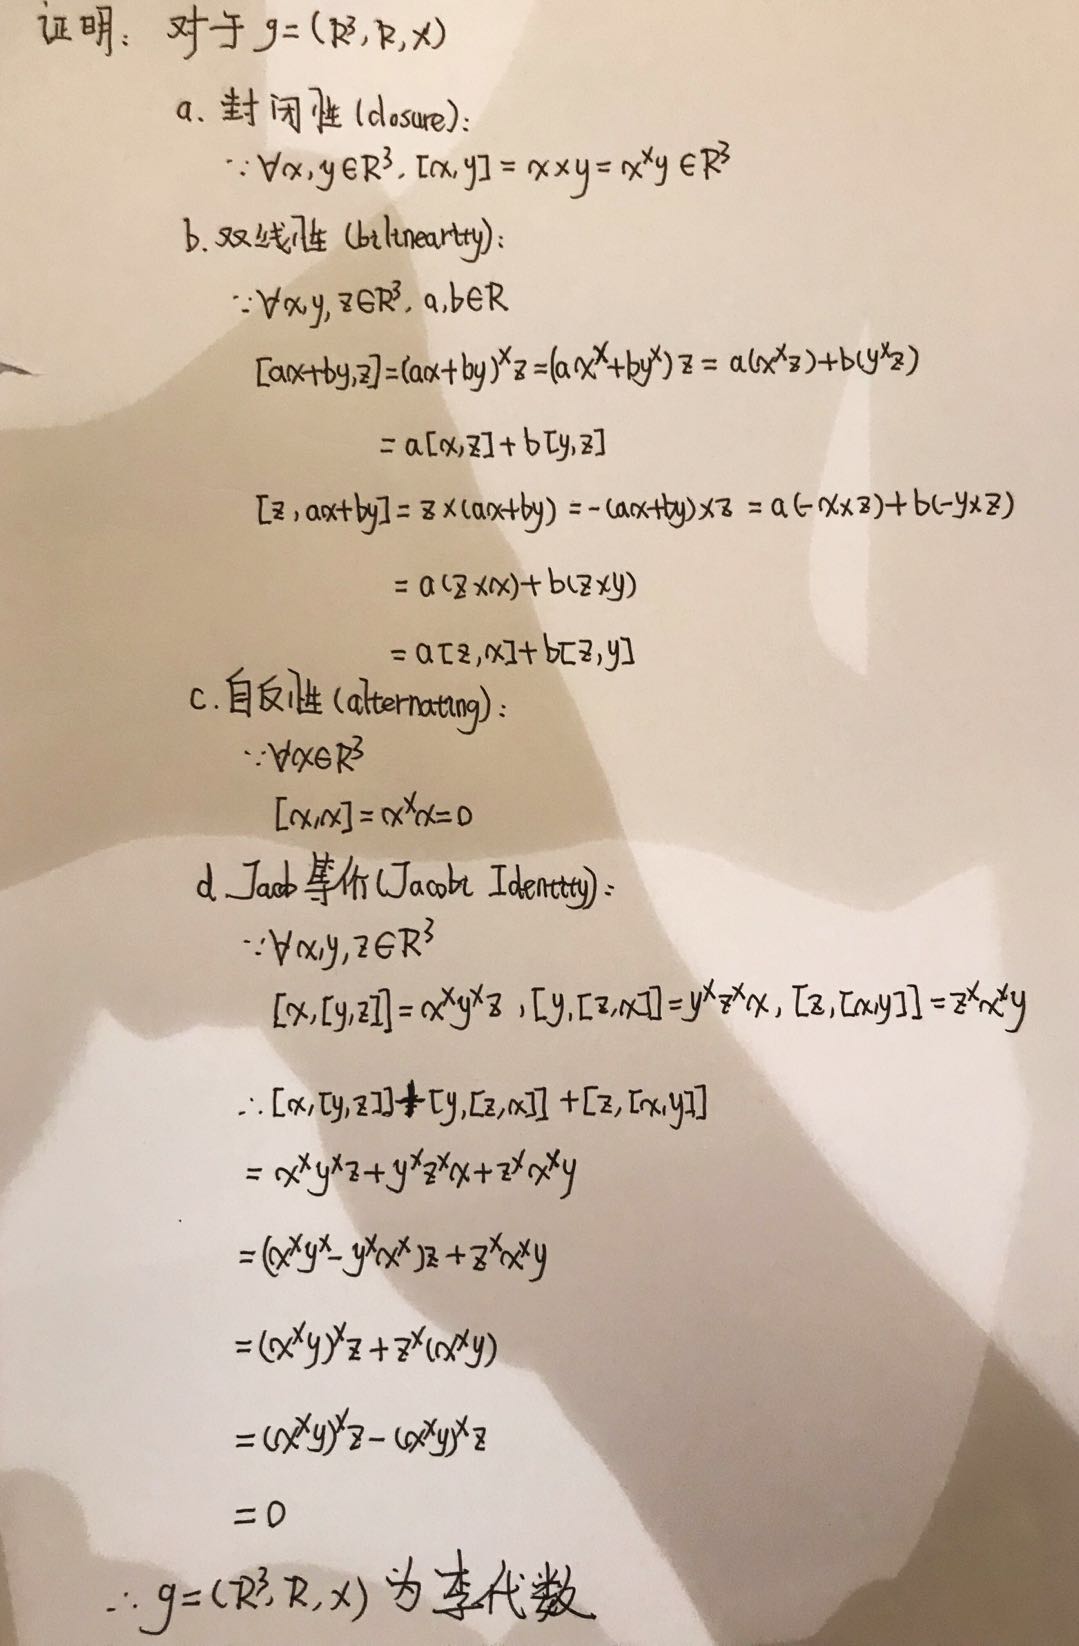 证明: 对于 g=(R³, R, ×)
a. 封闭性 (closure):
∵∀x, y∈R³, [x, y] = x×y = x^×y ∈R³
b. 双线性 (bilinearity):
∵∀x, y, z∈R³, a, b∈R
[ax+by, z]=(ax+by)^×z=(ax^×+by^×)z = a(x^×z)+b(y^×z)
= a[x,z]+b[y,z]
[z, ax+by] = z×(ax+by) = -(ax+by)×z = a(-x×z)+b(-y×z)
= a(z×x)+b(z×y)
= a[z,x]+b[z,y]
c. 自反性 (alternating):
∵∀x∈R³
[x,x]=x^×x=0
d. Jacob等价 (Jacobi Identity):
∵∀x,y, z∈R³
[x,[y,z]]=x^×y^×z, [y,[z,x]]=y^×z^×x, [z,[x,y]]=z^×x^×y
∴ [x,[y,z]]+[y,[z,x]]+[z,[x,y]]
= x^×y^×z+y^×z^×x+z^×x^×y
=(x^×y^×-y^×x^×)z+z^×x^×y
=(x^×y)^×z+z^×(x^×y)
=(x^×y)^×z-(x^×y)^×z
=0
∴ g=(R³, R, ×) 为李代数